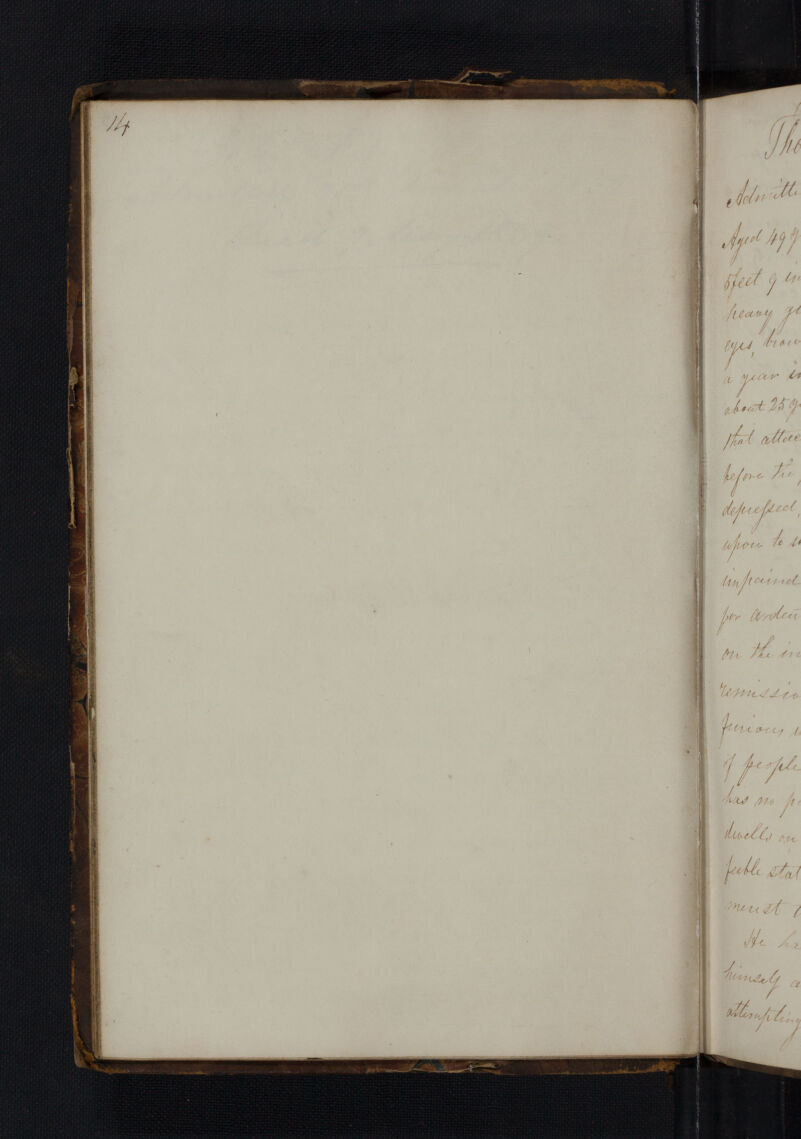 14
Tho
Admitte
Aged 49 y
5 feet 9 in
heavy
eyes, brow
a year in
about 25 y
that attac
before the
depressed,
upon to s
impaired
for
on the in
remissio
furious
of people
has no p
dwells on
feeble stat
must t
He ha
himself a
attempting